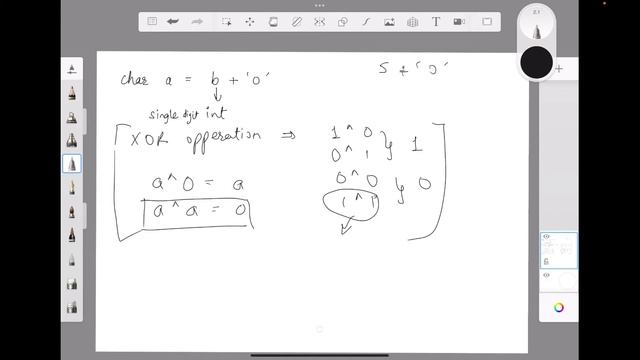 char a = b + '0'
5 + '0'
single digit int
XOR opperation ⇒
1 ^ 0
0 ^ 1 } 1
a ^ 0 = a
0 ^ 0
1 ^ 1 } 0
a ^ a = 0
2.1